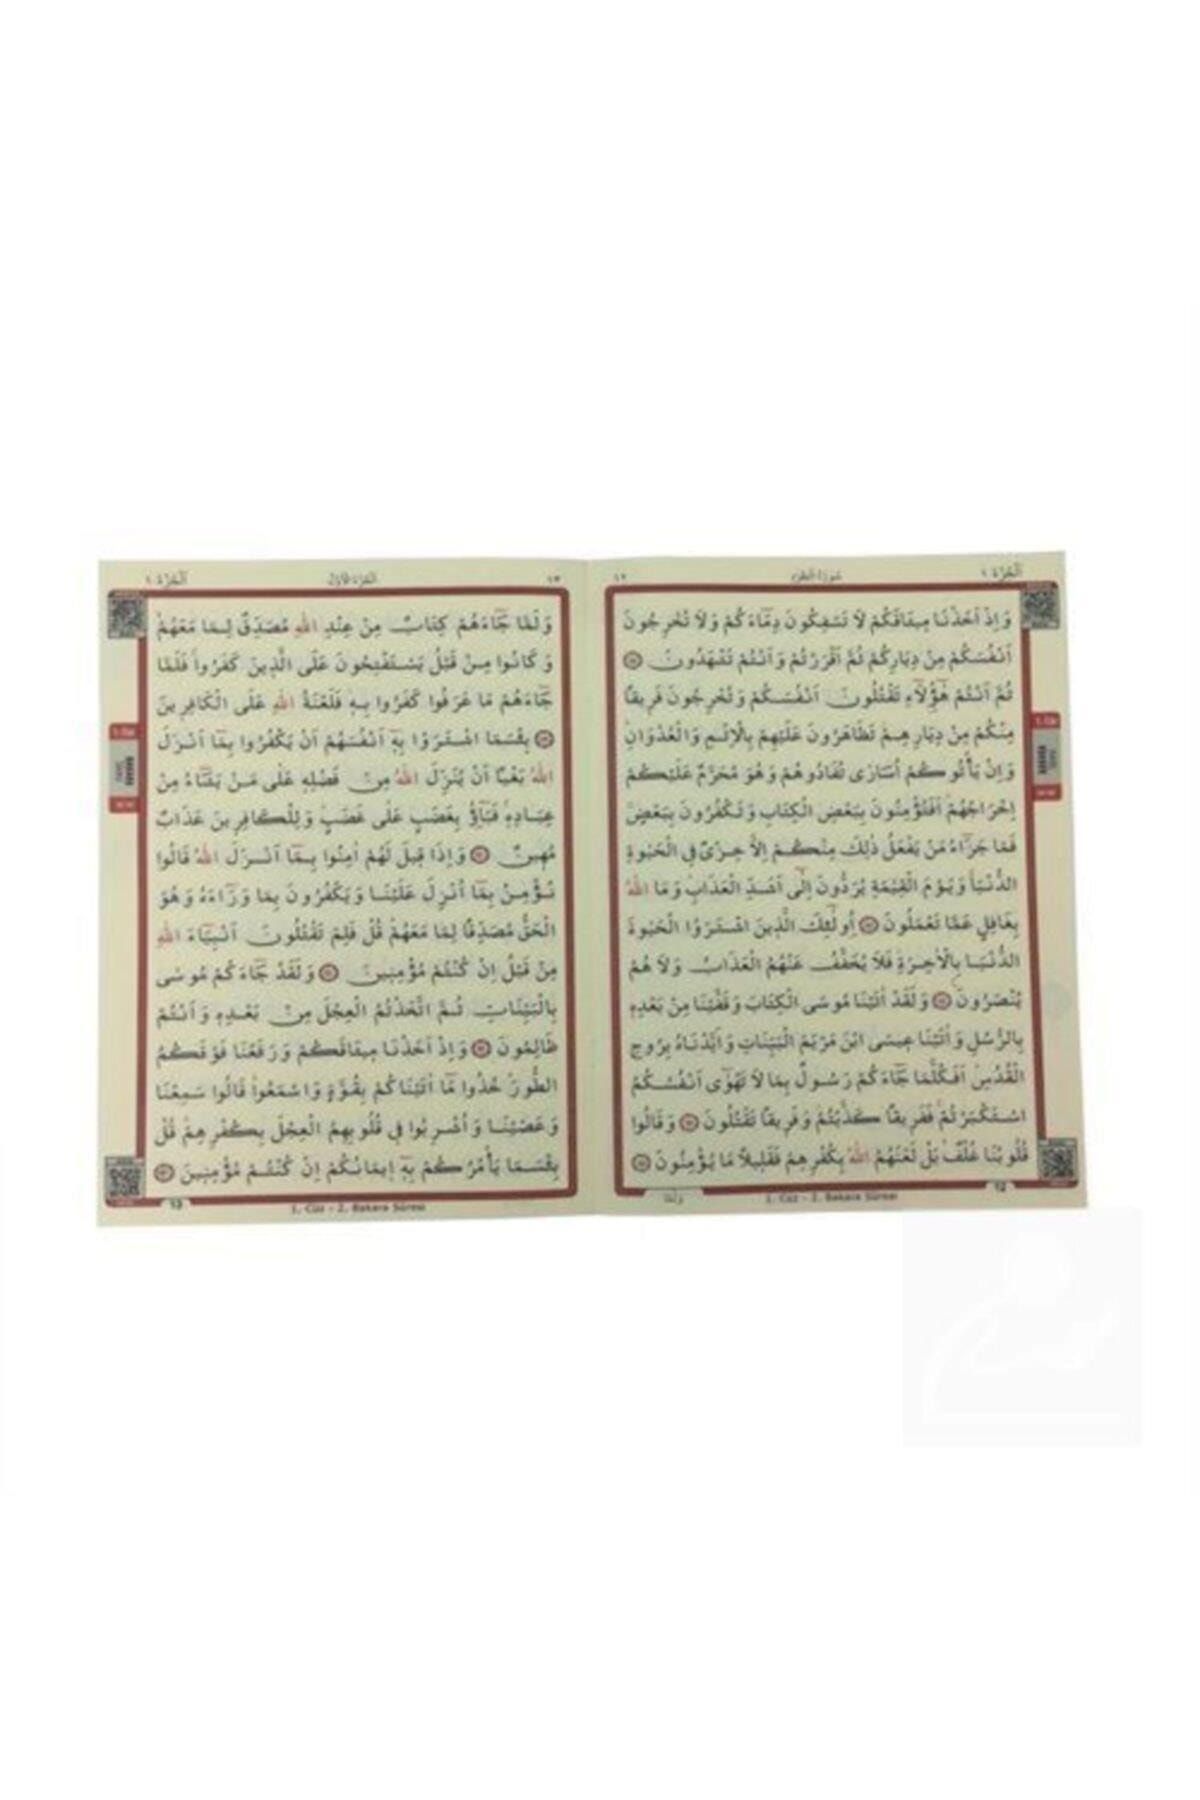 الجزء ١
سورة البقرة
١٢
وَاِذْ اَخَذْنَا مِيثَاقَكُمْ لَا تَسْفِكُونَ دِمَٓاءَكُمْ وَلَا تُخْرِجُونَ
اَنْفُسَكُمْ مِنْ دِيَارِكُمْ ثُمَّ اَقْرَرْتُمْ وَاَنْتُمْ تَشْهَدُونَ
ثُمَّ اَنْتُمْ هٰٓؤُ۬لَٓاءِ تَقْتُلُونَ اَنْفُسَكُمْ وَتُخْرِجُونَ فَرِيقًا
مِنْكُمْ مِنْ دِيَارِهِمْ تَظَاهَرُونَ عَلَيْهِمْ بِالْاِثْمِ وَالْعُدْوَانِ
وَاِنْ يَأْتُوكُمْ اُسَارٰى تُفَادُوهُمْ وَهُوَ مُحَرَّمٌ عَلَيْكُمْ
اِخْرَاجُهُمْ اَفَتُؤْمِنُونَ بِبَعْضِ الْكِتَابِ وَتَكْفُرُونَ بِبَعْضٍ
فَمَا جَزَٓاءُ مَنْ يَفْعَلُ ذٰلِكَ مِنْكُمْ اِلَّا خِزْىٌ فِى الْحَيٰوةِ
الدُّنْيَا وَيَوْمَ الْقِيٰمَةِ يُرَدُّونَ اِلٰٓى اَشَدِّ الْعَذَابِ وَمَا اللّٰهُ
بِغَافِلٍ عَمَّا تَعْمَلُونَ اُو۬لٰٓئِكَ الَّذِينَ اشْتَرَوُا الْحَيٰوةَ
الدُّنْيَا بِالْاٰخِرَةِ فَلَا يُخَفَّفُ عَنْهُمُ الْعَذَابُ وَلَا هُمْ
يُنْصَرُونَ وَلَقَدْ اٰتَيْنَا مُوسَى الْكِتَابَ وَقَفَّيْنَا مِنْ بَعْدِهِ
بِالرُّسُلِ وَاٰتَيْنَا عِيسَى ابْنَ مَرْيَمَ الْبَيِّنَاتِ وَاَيَّدْنَاهُ بِرُوحِ
الْقُدُسِ اَفَكُلَّمَا جَٓاءَكُمْ رَسُولٌ بِمَا لَا تَهْوٰٓى اَنْفُسُكُمُ
اسْتَكْبَرْتُمْ فَفَرِيقًا كَذَّبْتُمْ وَفَرِيقًا تَقْتُلُونَ وَقَالُوا
قُلُوبُنَا غُلْفٌ بَلْ لَعَنَهُمُ اللّٰهُ بِكُفْرِهِمْ فَقَلِيلًا مَا يُؤْمِنُونَ
12
1. Cüz - 2. Bakara Sûresi
١٣
الجزء الاول
الجزء ١
وَلَمَّا جَٓاءَهُمْ كِتَابٌ مِنْ عِنْدِ اللّٰهِ مُصَدِّقٌ لِمَا مَعَهُمْ
وَكَانُوا مِنْ قَبْلُ يَسْتَفْتِحُونَ عَلَى الَّذِينَ كَفَرُوا فَلَمَّا
جَٓاءَهُمْ مَا عَرَفُوا كَفَرُوا بِهِ فَلَعْنَةُ اللّٰهِ عَلَى الْكَافِرِينَ
بِئْسَمَا اشْتَرَوْا بِهٓ اَنْفُسَهُمْ اَنْ يَكْفُرُوا بِمَٓا اَنْزَلَ
اللّٰهُ بَغْيًا اَنْ يُنَزِّلَ اللّٰهُ مِنْ فَضْلِهِ عَلٰى مَنْ يَشَٓاءُ مِنْ
عِبَادِهِ فَبَٓاؤُ۫ بِغَضَبٍ عَلٰى غَضَبٍ وَلِلْكَافِرِينَ عَذَابٌ
مُهِينٌ وَاِذَا قِيلَ لَهُمْ اٰمِنُوا بِمَٓا اَنْزَلَ اللّٰهُ قَالُوا
نُؤْمِنُ بِمَٓا اُنْزِلَ عَلَيْنَا وَيَكْفُرُونَ بِمَا وَرَٓاءَهُ وَهُوَ
الْحَقُّ مُصَدِّقًا لِمَا مَعَهُمْ قُلْ فَلِمَ تَقْتُلُونَ اَنْبِيَٓاءَ اللّٰهِ
مِنْ قَبْلُ اِنْ كُنْتُمْ مُؤْمِنِينَ وَلَقَدْ جَٓاءَكُمْ مُوسٰى
بِالْبَيِّنَاتِ ثُمَّ اتَّخَذْتُمُ الْعِجْلَ مِنْ بَعْدِهِ وَاَنْتُمْ
ظَالِمُونَ وَاِذْ اَخَذْنَا مِيثَاقَكُمْ وَرَفَعْنَا فَوْقَكُمُ
الطُّورَ خُذُوا مَٓا اٰتَيْنَاكُمْ بِقُوَّةٍ وَاسْمَعُوا قَالُوا سَمِعْنَا
وَعَصَيْنَا وَاُشْرِبُوا فِى قُلُوبِهِمُ الْعِجْلَ بِكُفْرِهِمْ قُلْ
بِئْسَمَا يَأْمُرُكُمْ بِهٓ اِيمَانُكُمْ اِنْ كُنْتُمْ مُؤْمِنِينَ
13
1. Cüz - 2. Bakara Sûresi